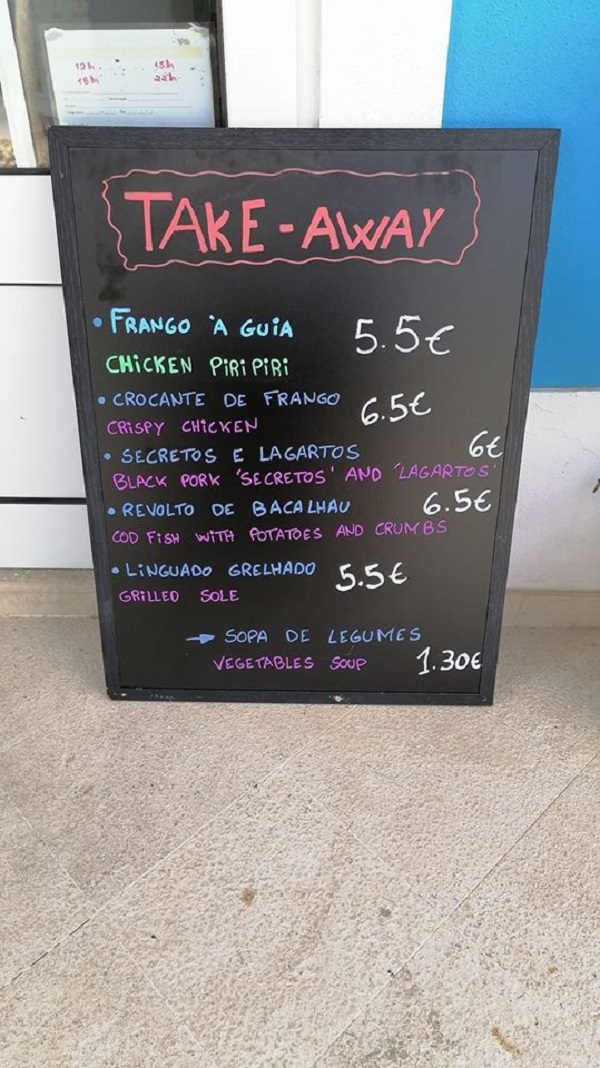 12h. 15h.
18h. 22h.
TAKE-AWAY
• FRANGO À GUIA 5.5€
CHICKEN PIRIPIRI
• CROCANTE DE FRANGO 6.5€
CRISPY CHICKEN
• SECRETOS E LAGARTOS 6€
BLACK PORK 'SECRETOS' AND 'LAGARTOS'
• REVOLTO DE BACALHAU 6.5€
COD FISH WITH POTATOES AND CRUMBS
• LINGUADO GRELHADO 5.5€
GRILLED SOLE
→ SOPA DE LEGUMES
VEGETABLES SOUP 1.30€